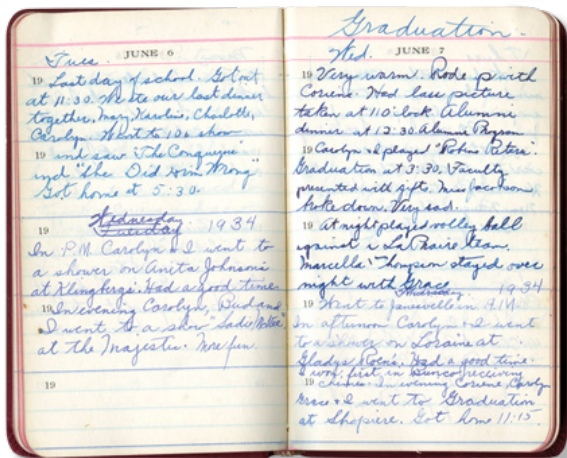 Tues.
JUNE 6
19 Last day of school. Got out
at 11:30. We ate our last dinner
together, Mary, Karoline, Charlotte,
Carolyn. Went to 10¢ show
19 and saw "The Conquerors"
and "She Did Him Wrong"
Got home at 5:30.
Wednesday
19 Tuesday 1934
In P.M. Carolyn & I went to
a shower on Anita Johnson's
at Klingberg's. Had a good time.
19 In evening Carolyn, Bud and
I went to a show "Sadie McKee"
at the Majestic. More fun.
19
Graduation.
Wed. JUNE 7
19 Very warm. Rode up with
Coriene. Had class picture
taken at 11 O'clock. Alumni
dinner at 12:30. Alumni Program
19 Carolyn & I played "Robin's Return".
Graduation at 3:30. Faculty
presented with gifts. Miss Jacobson
broke down. Very sad.
19 At night played volley ball
against a LaPrairie team.
Marcella Thompson stayed over
night with Grace
Thursday 1934
19 Went to Janesville in A.M.
In afternoon Carolyn & I went
to a shower on Loraine at
Gladys. Had a good time.
I won first in Bunco, receiving
19 In evening Coriene, Carolyn
Grace & I went to Graduation
at Shopiere. Got home 11:15.